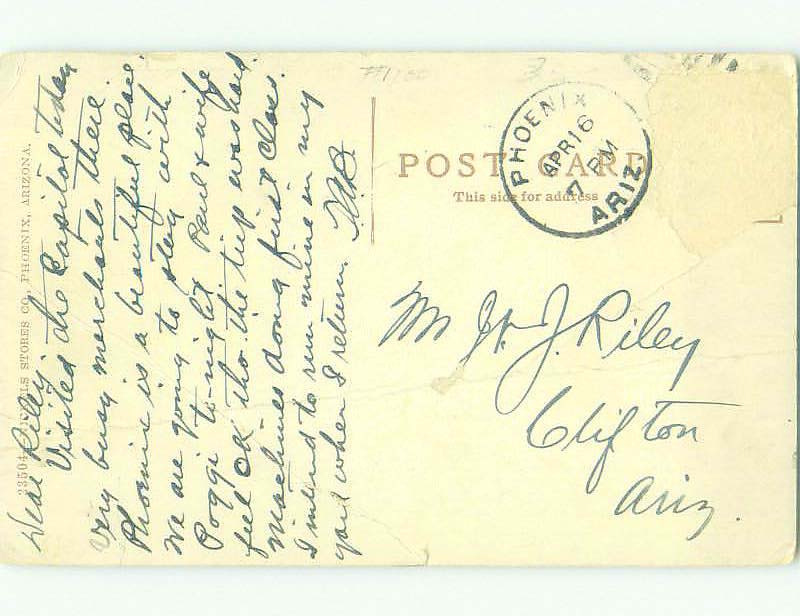 Dear Riley,
Visited the Capitol today
very busy merchants there.
Phoenix is a beautiful place
We are going to stay with
Poggi to-night Paul & wife
feel OK tho the trip was hard.
Machines doing first class.
I intend to run mine in my
yard when I return.
POST CARD
This side for address
PHOENIX
APR 16
7 PM
ARIZ
Mr J. Riley
Clifton
Ariz.
STORES CO., PHOENIX, ARIZONA.